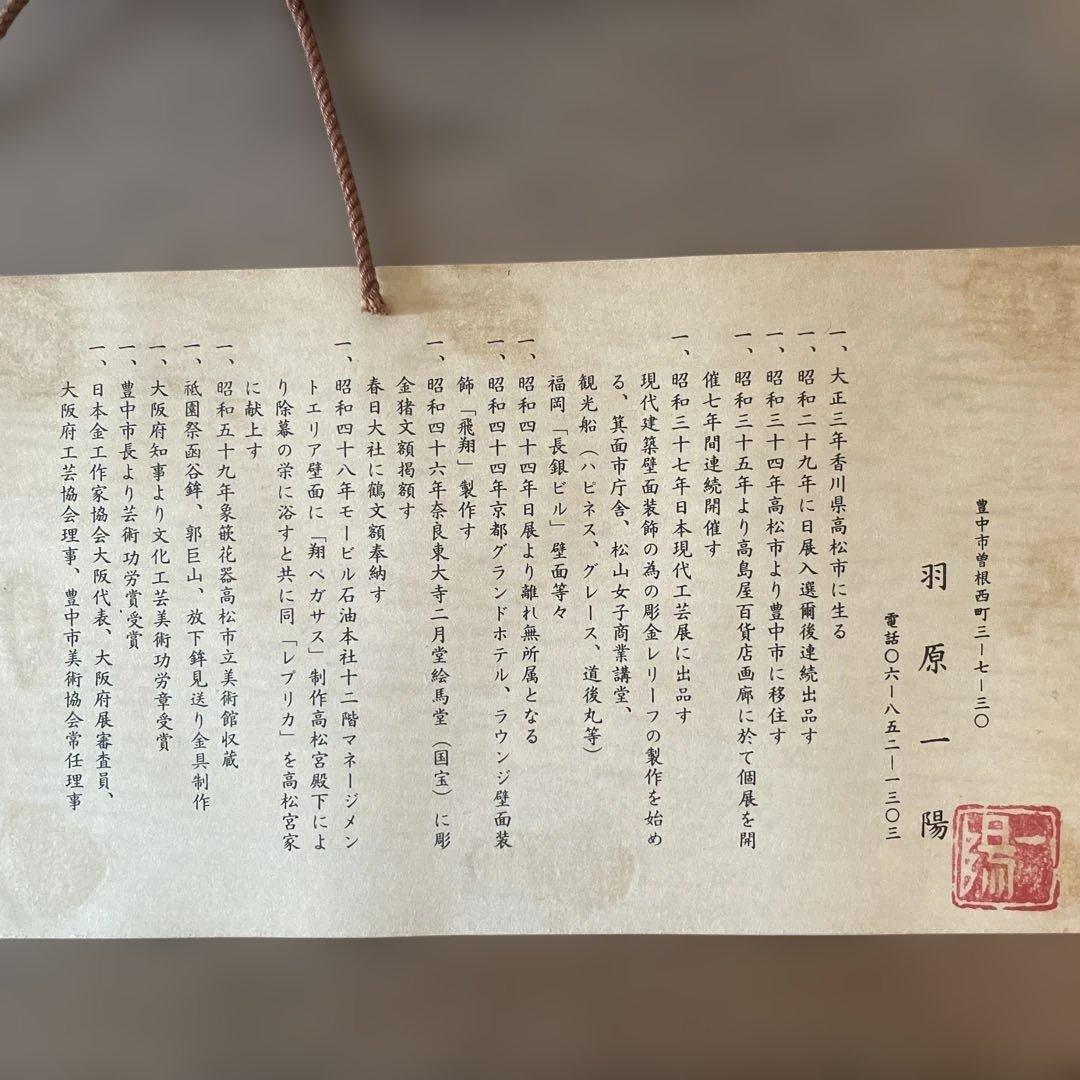 豊中市曽根西町三ー七ー三〇
羽原一陽
電話〇六ー八五二ー一三〇三
一陽
一、大正三年香川県高松市に生る
一、昭和二十九年に日展入選爾後連続出品す
一、昭和三十四年高松市より豊中市に移住す
一、昭和三十五年より高島屋百貨店画廊に於て個展を開
催七年間連続開催す
一、昭和三十七年日本現代工芸展に出品す
現代建築壁面装飾の為の彫金レリーフの製作を始め
る、箕面市庁舎、松山女子商業講堂、
観光船(ハピネス、グレース、道後丸等)
福岡「長銀ビル」壁面等々
一、昭和四十四年日展より離れ無所属となる
一、昭和四十四年京都グランドホテル、ラウンジ壁面装
飾「飛翔」製作す
一、昭和四十六年奈良東大寺二月堂絵馬堂(国宝)に彫
金猪文額掲額す
春日大社に鶴文額奉納す
一、昭和四十八年モービル石油本社十二階マネージメン
トエリア壁面に「翔ペガサス」制作高松宮殿下によ
り除幕の栄に浴すと共に同「レプリカ」を高松宮家
に献上す
一、昭和五十九年象嵌花器高松市立美術館収蔵
一、祗園祭函谷鉾、郭巨山、放下鉾見送り金具制作
一、大阪府知事より文化工芸美術功労章受賞
一、豊中市長より芸術功労賞受賞
一、日本金工作家協会大阪代表、大阪府展審査員、
大阪府工芸協会理事、豊中市美術協会常任理事